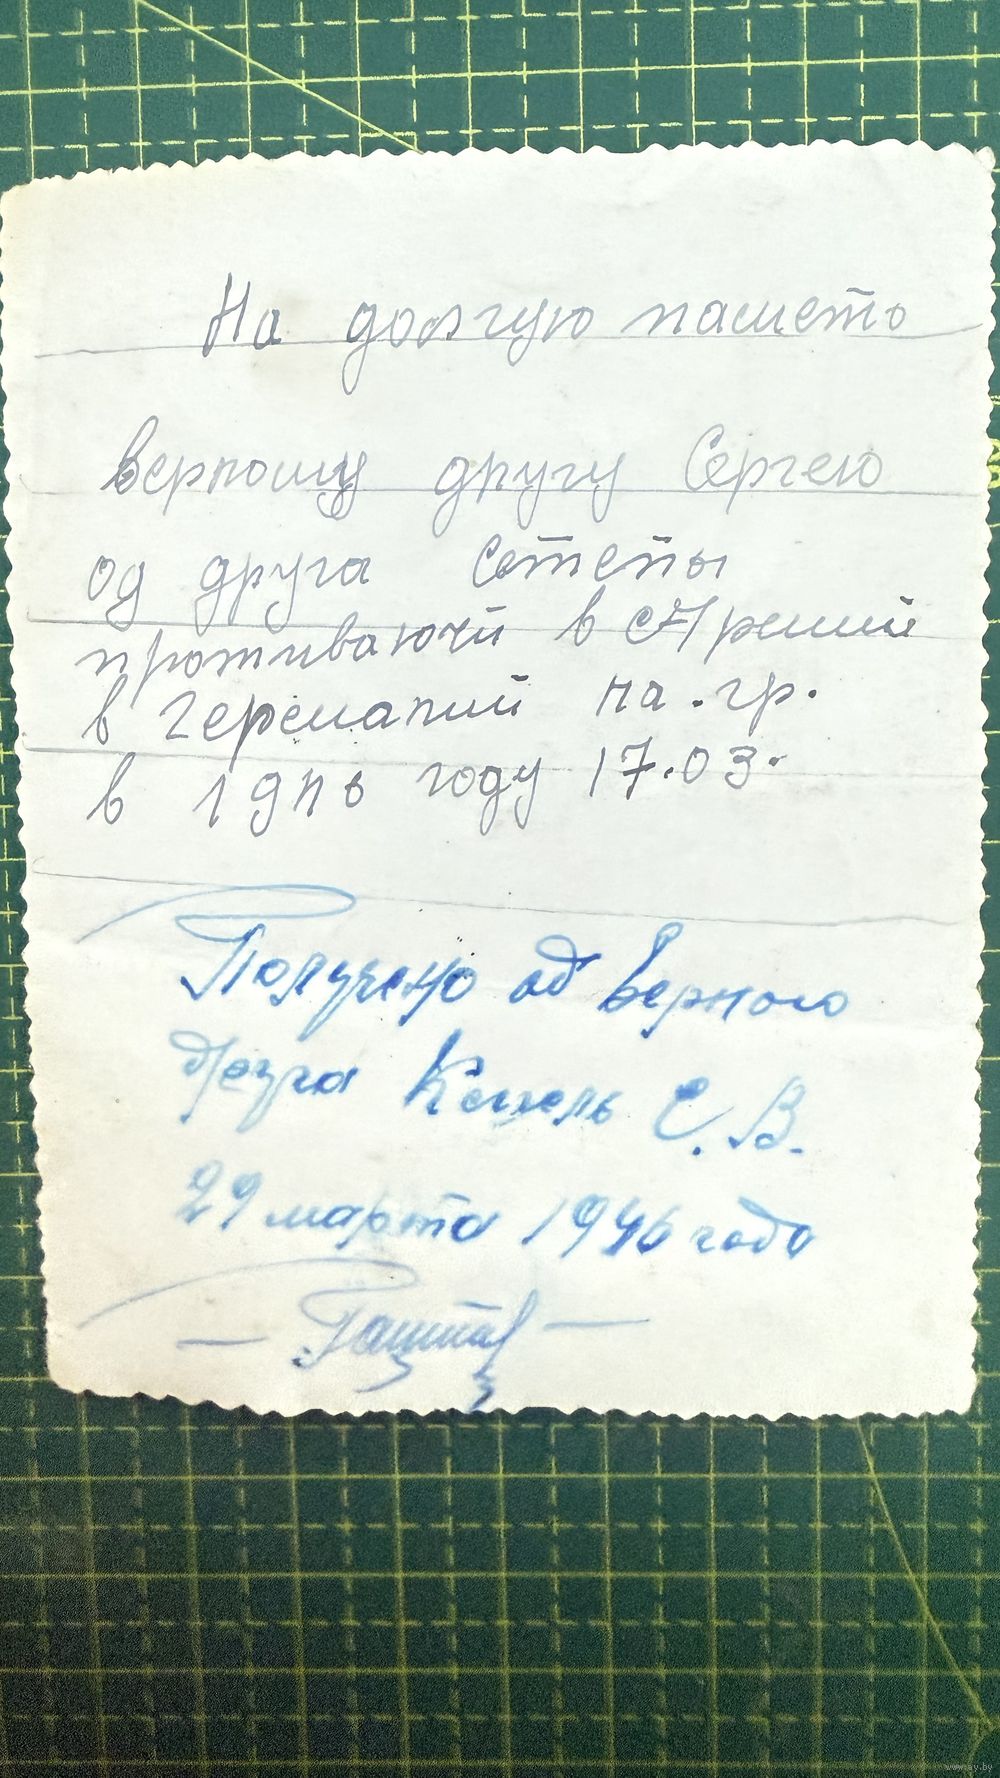 На долгую память
верному другу Сергею
од друга Стёпы
проживаючи в Армии
в Германии на .гр.
в 1 день году 17.03.
Получено од верного
друга С. В.
29 марта 1946 года
www.ay.by